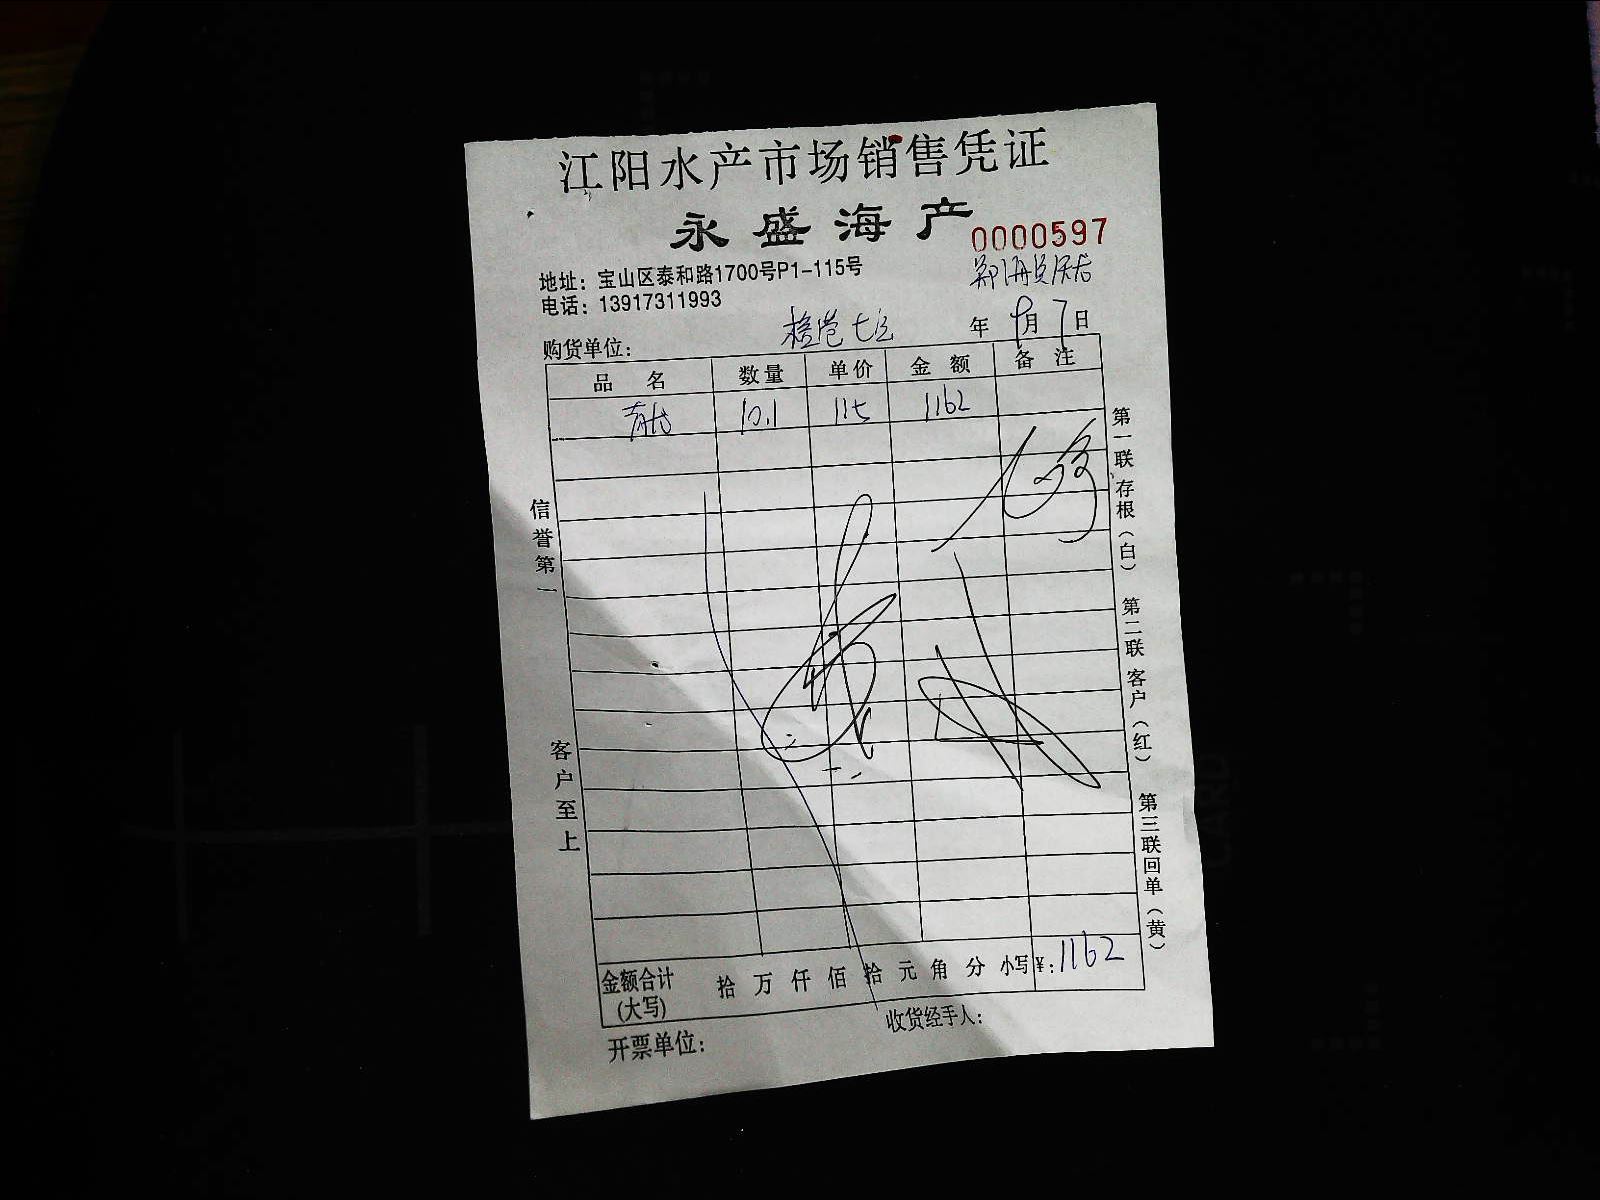 江阳水产市场销售凭证
永盛海产
0000597
地址：宝山区泰和路1700号P1-115号
电话：13917311993
年 9月7日
购货单位：
品名 数量 单价 金额 备注
10.1 115 1162
信誉第一
客户至上
第一联存根（白）
第二联客户（红）
第三联回单（黄）
金额合计 拾 万 仟 佰 拾 元 角 分 小写¥：1162
(大写)
收货经手人：
开票单位：